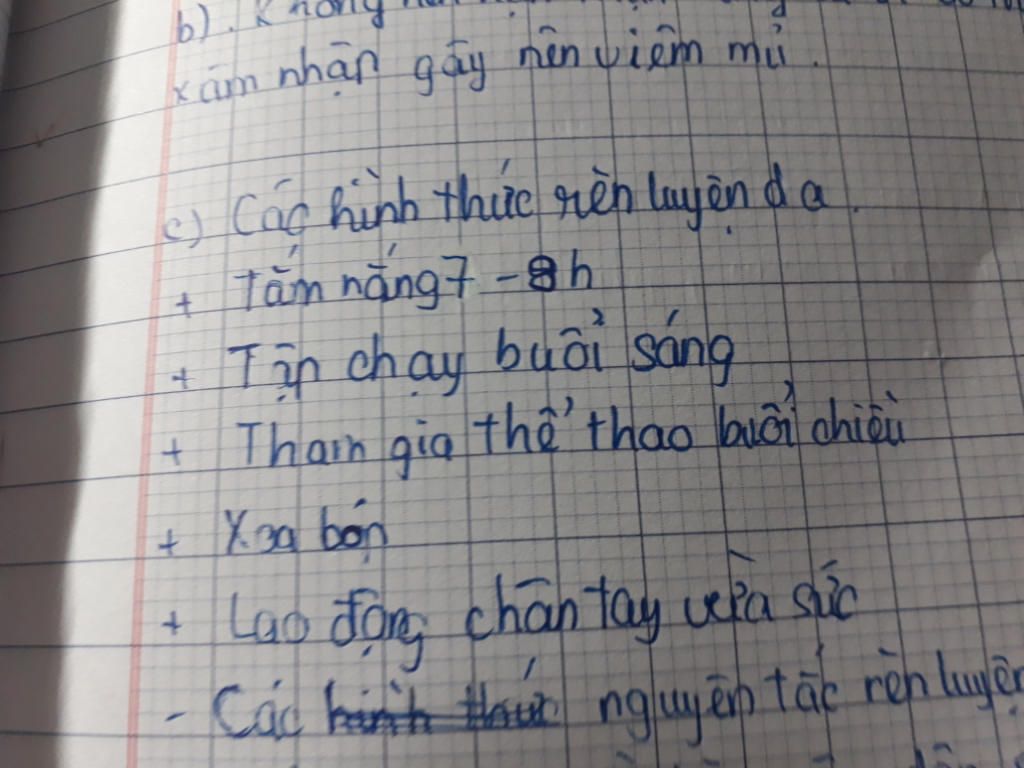 b). Không nên
xâm nhập gây nên viêm mủ.
c) Các hình thức rèn luyện da.
+ Tắm nắng 7 - 8h
+ Tập chạy buổi sáng
+ Tham gia thể thao buổi chiều
+ Xoa bóp
+ Lao động chân tay vừa sức
- Các nguyên tắc rèn luyện